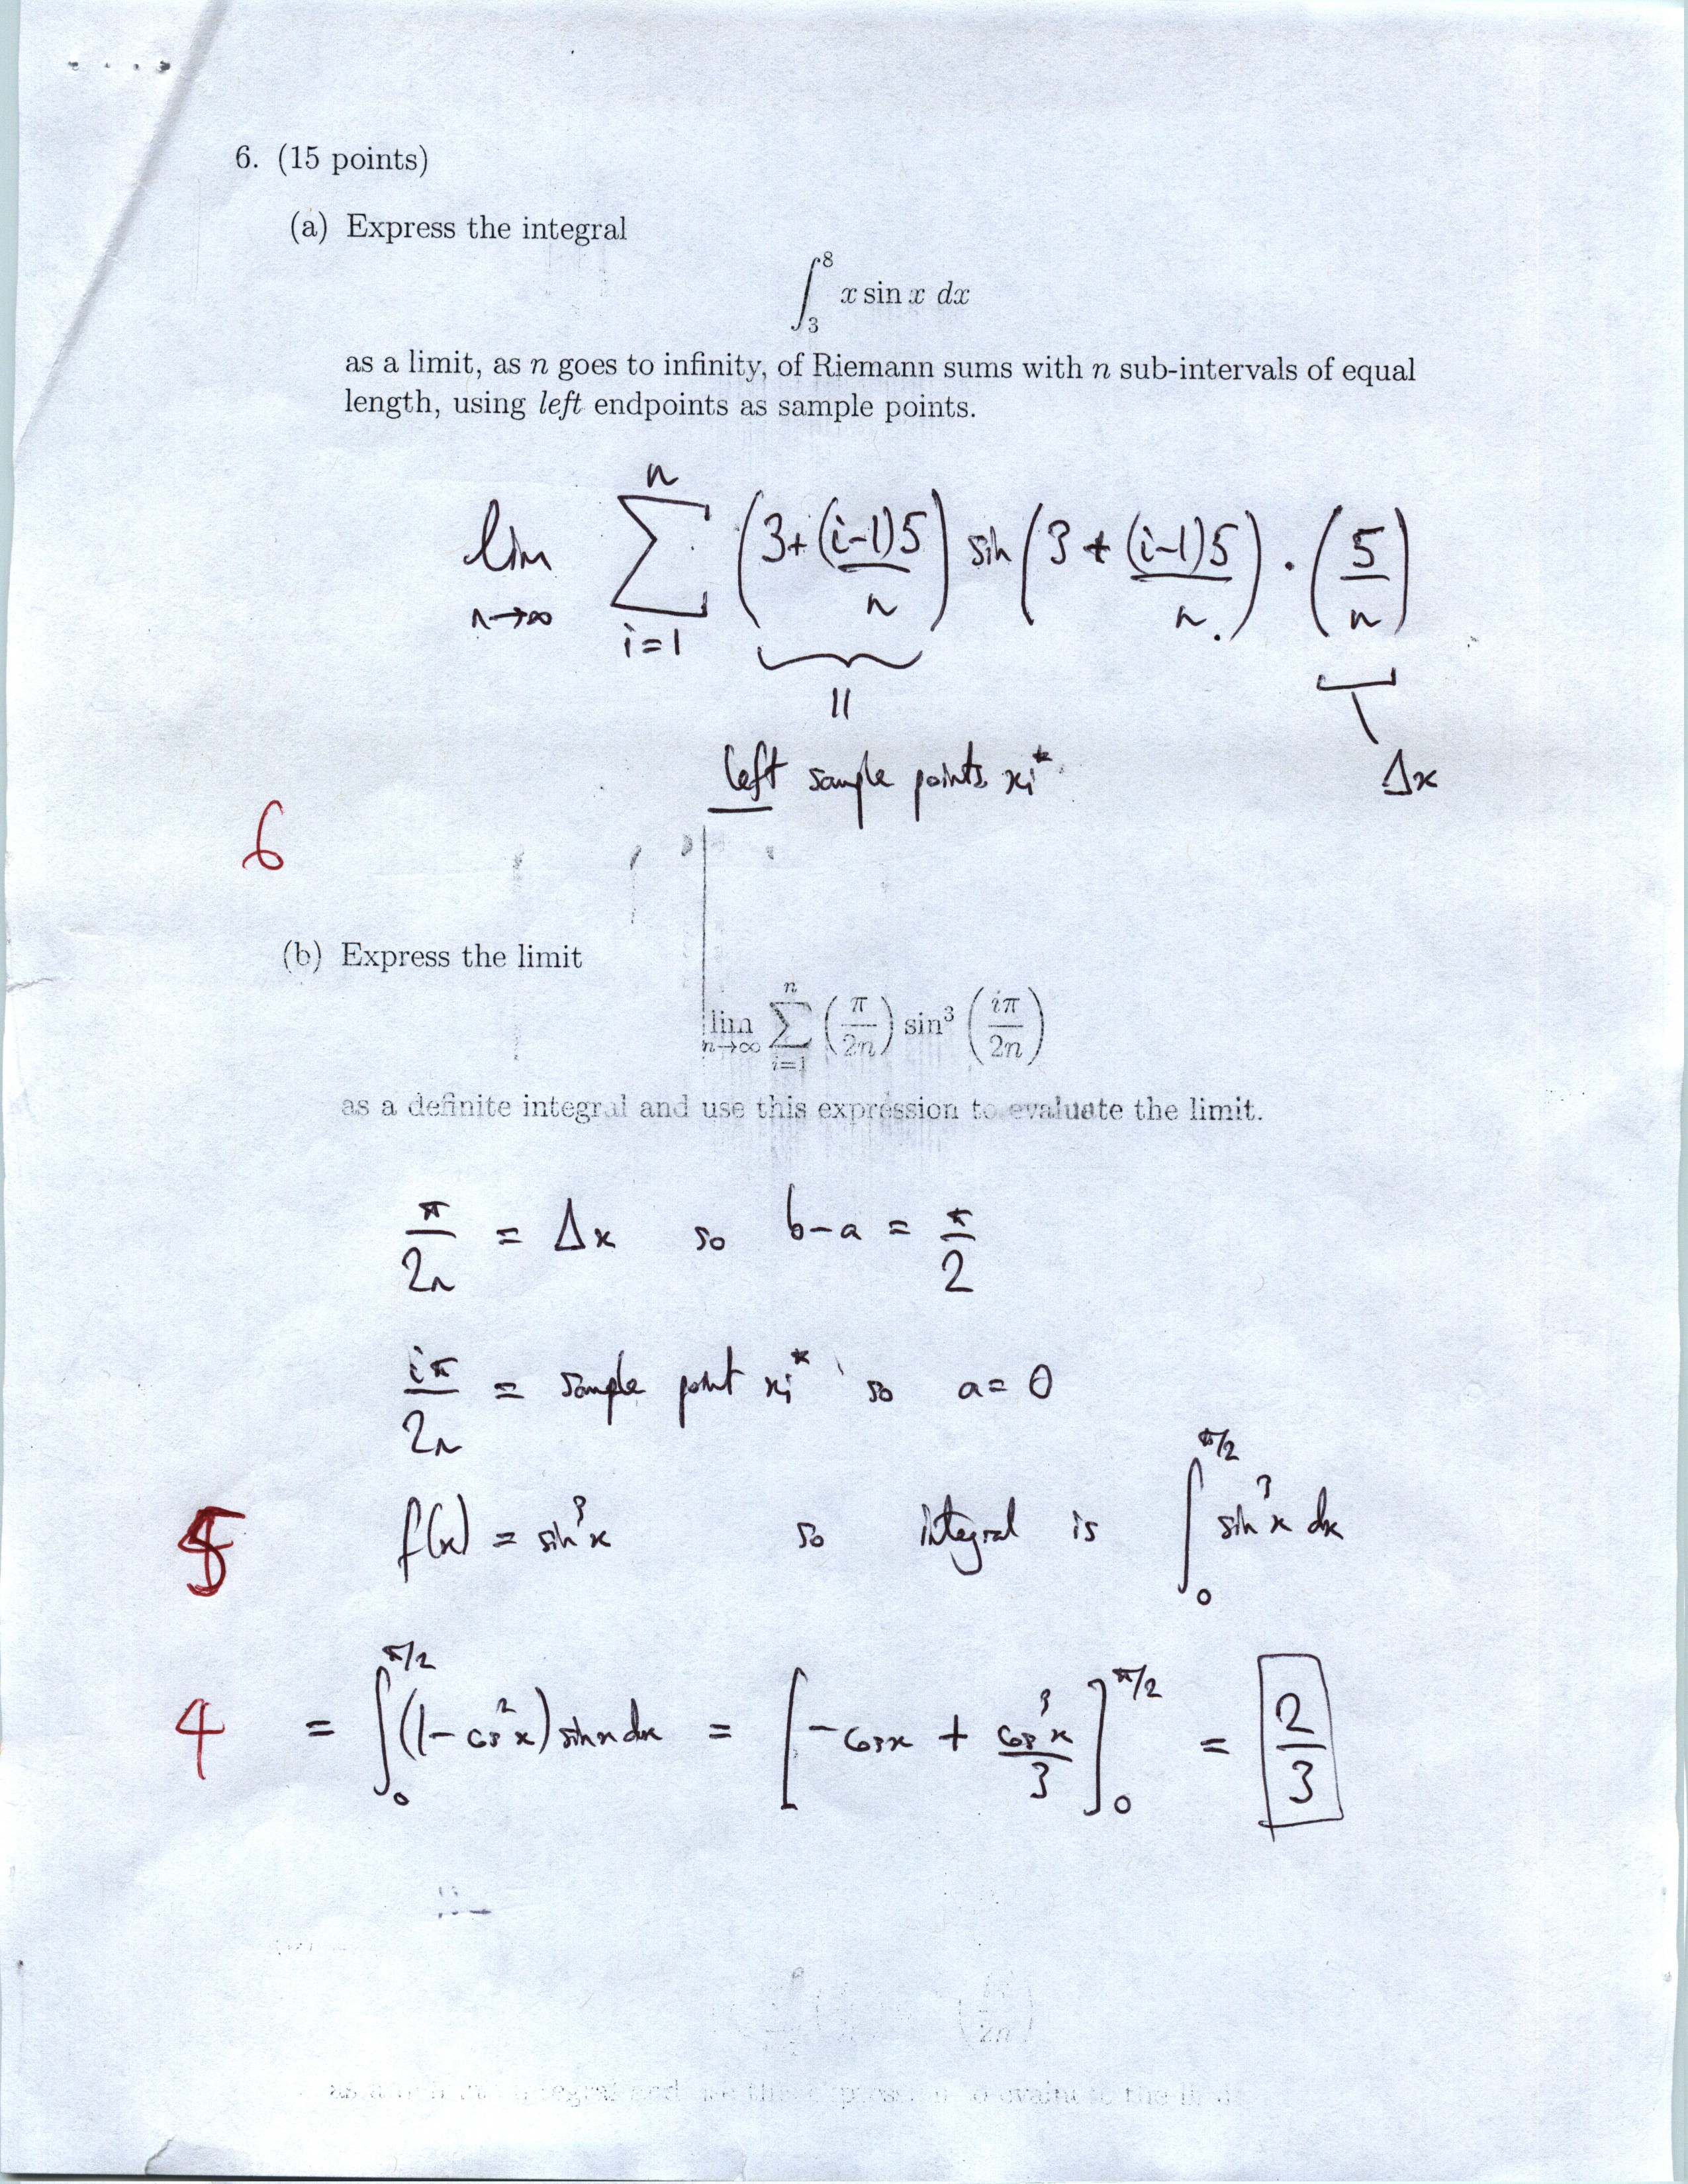 6. (15 points)
(a) Express the integral
∫₃⁸ x sin x dx
as a limit, as n goes to infinity, of Riemann sums with n sub-intervals of equal
length, using left endpoints as sample points.
lim n→∞ Σ i=1 n (3 + (i-1)5/n) sin (3 + (i-1)5/n) · (5/n)
||
left sample points xi* Δx
6
(b) Express the limit
lim n→∞ Σ i=1 n (π/2n) sin³ (iπ/2n)
as a definite integral and use this expression to evaluate the limit.
π/2n = Δx so b-a = π/2
iπ/2n = sample point xi* so a = 0
5 f(x) = sin³x so integral is ∫₀^π/2 sin³x dx
4 = ∫₀^π/2 (1-cos²x) sinx dx = [-cosx + cos³x/3]₀^π/2 = 2/3